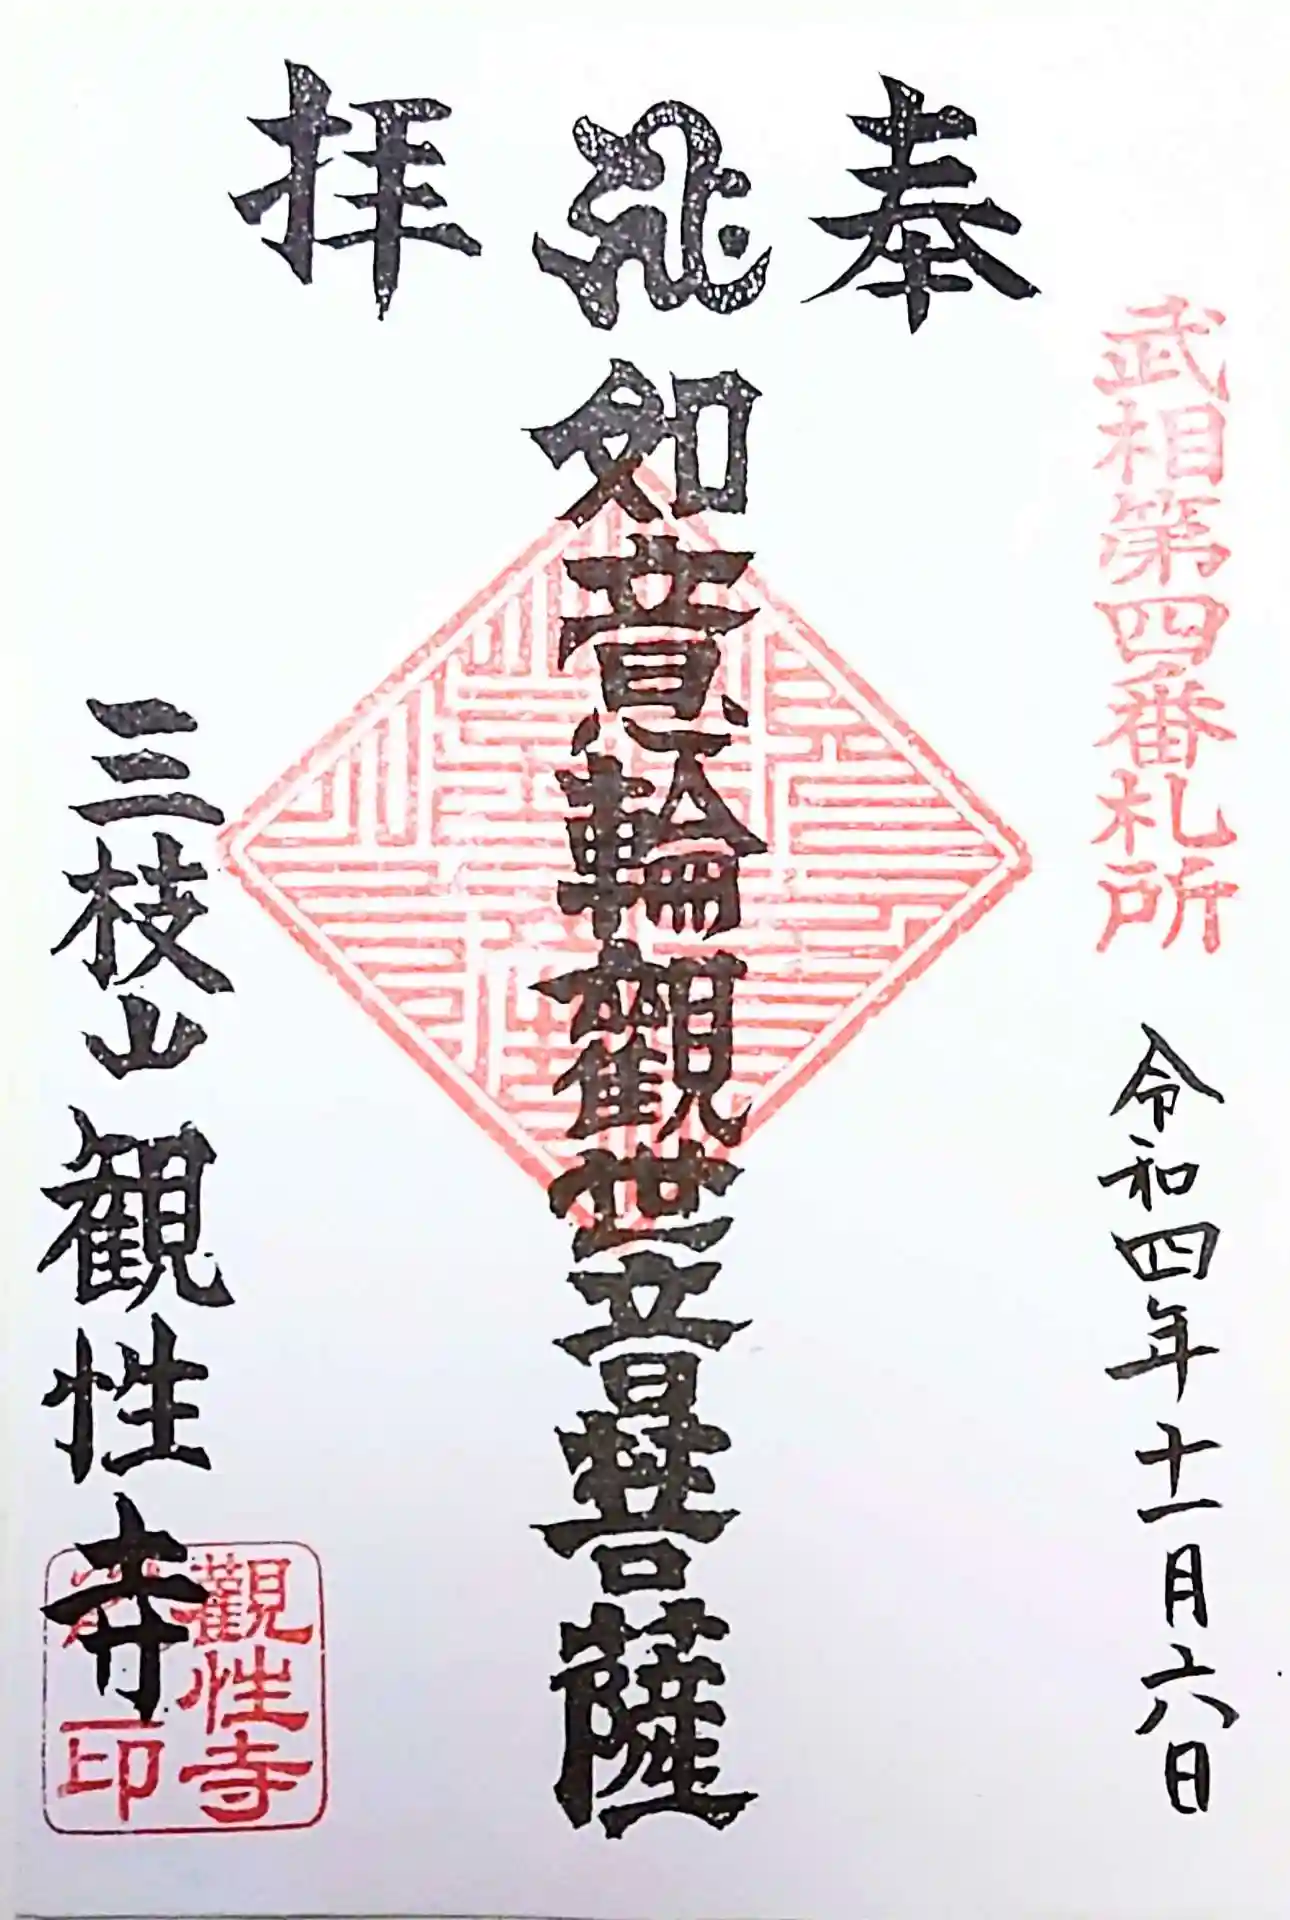 奉拝
武相第四番札所
令和四年十一月六日
如意輪観世音菩薩
三枝山 観性寺
觀性寺
印